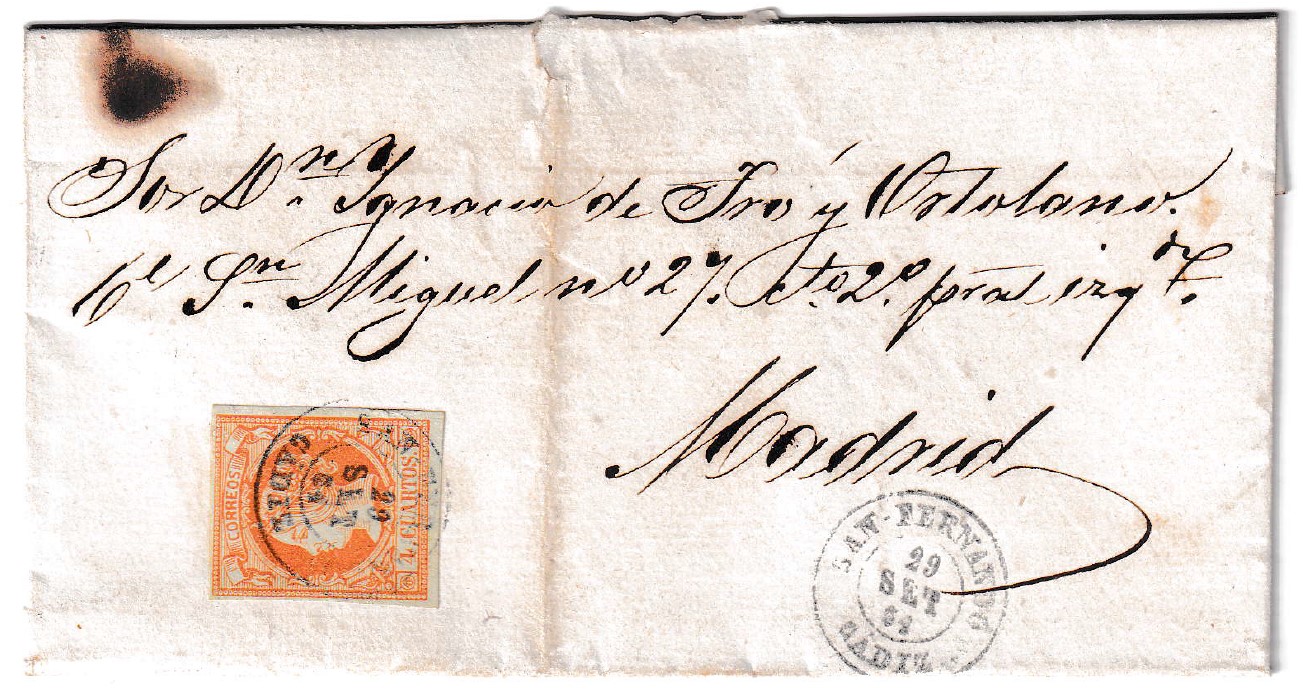 Sor Dn. Ygnacio de Fro y Ortolano.
Cl Sn. Miguel nº 27. cto. 2º pral izqda.
Madrid
CORREOS
4 CUARTOS
CADIZ
29
SET
61
SAN-FERNANDO
29
SET
61
CADIZ